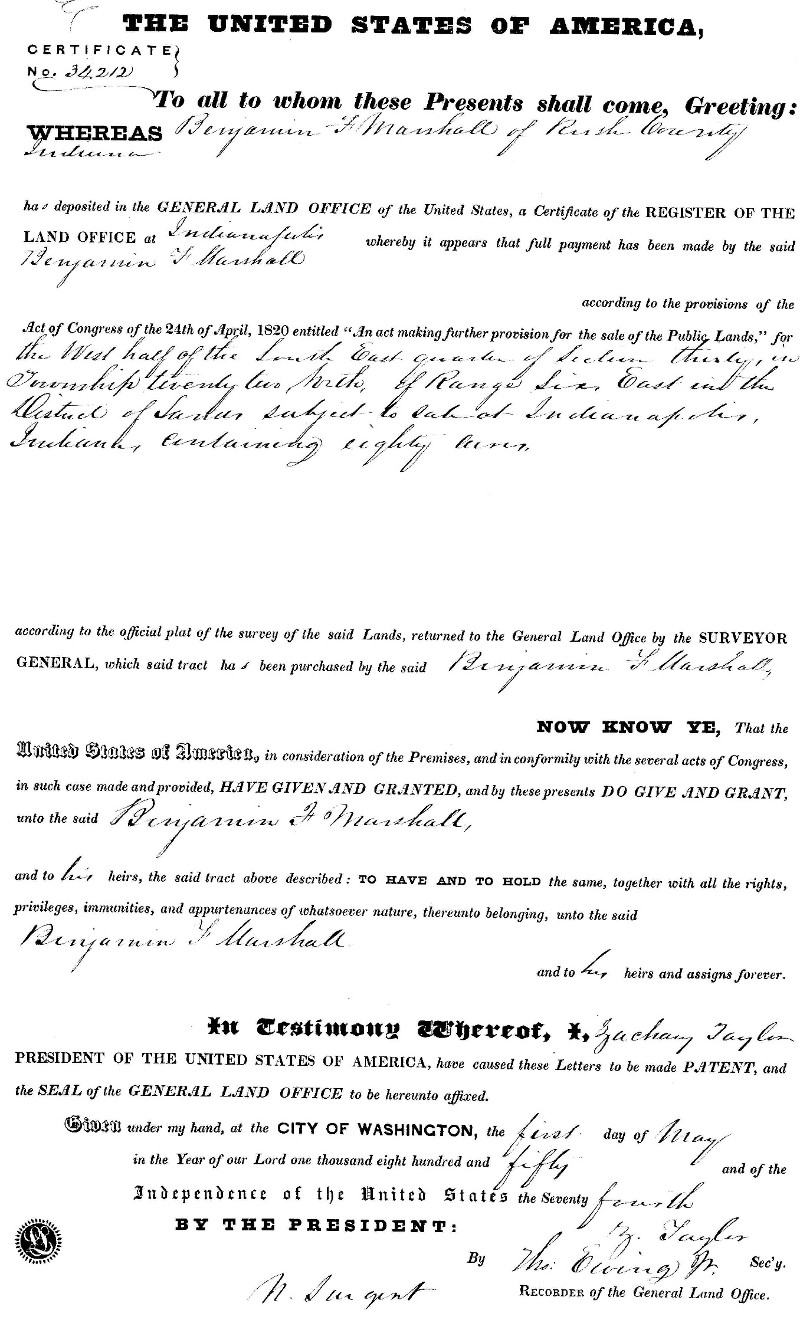 THE UNITED STATES OF AMERICA,
CERTIFICATE
No. 34,212
To all to whom these Presents shall come, Greeting:
WHEREAS Benjamin F Marshall of Rush County
Indiana
has deposited in the GENERAL LAND OFFICE of the United States, a Certificate of the REGISTER OF THE
LAND OFFICE at Indianapolis whereby it appears that full payment has been made by the said
Benjamin F Marshall
according to the provisions of the
Act of Congress of the 24th of April, 1820 entitled "An act making further provision for the sale of the Public Lands," for
the West half of the South East quarter of Section thirty, in
Township twenty two, North, of Range Six, East in the
District of Lands subject to sale at Indianapolis,
Indiana, containing eighty acres,
according to the official plat of the survey of the said Lands, returned to the General Land Office by the SURVEYOR
GENERAL, which said tract has been purchased by the said Benjamin F Marshall,
NOW KNOW YE, That the
United States of America, in consideration of the Premises, and in conformity with the several acts of Congress,
in such case made and provided, HAVE GIVEN AND GRANTED, and by these presents DO GIVE AND GRANT,
unto the said Benjamin F Marshall,
and to his heirs, the said tract above described: TO HAVE AND TO HOLD the same, together with all the rights,
privileges, immunities, and appurtenances of whatsoever nature, thereunto belonging, unto the said
Benjamin F Marshall
and to his heirs and assigns forever.
In Testimony Whereof, I, Zachary Taylor
PRESIDENT OF THE UNITED STATES OF AMERICA, have caused these Letters to be made PATENT, and
the SEAL of the GENERAL LAND OFFICE to be hereunto affixed.
Given under my hand, at the CITY OF WASHINGTON, the first day of May
in the Year of our Lord one thousand eight hundred and fifty and of the
Independence of the United States the Seventy fourth
BY THE PRESIDENT: Z. Taylor
By Tho: Ewing Jr. Sec'y.
N. Sargent RECORDER of the General Land Office.